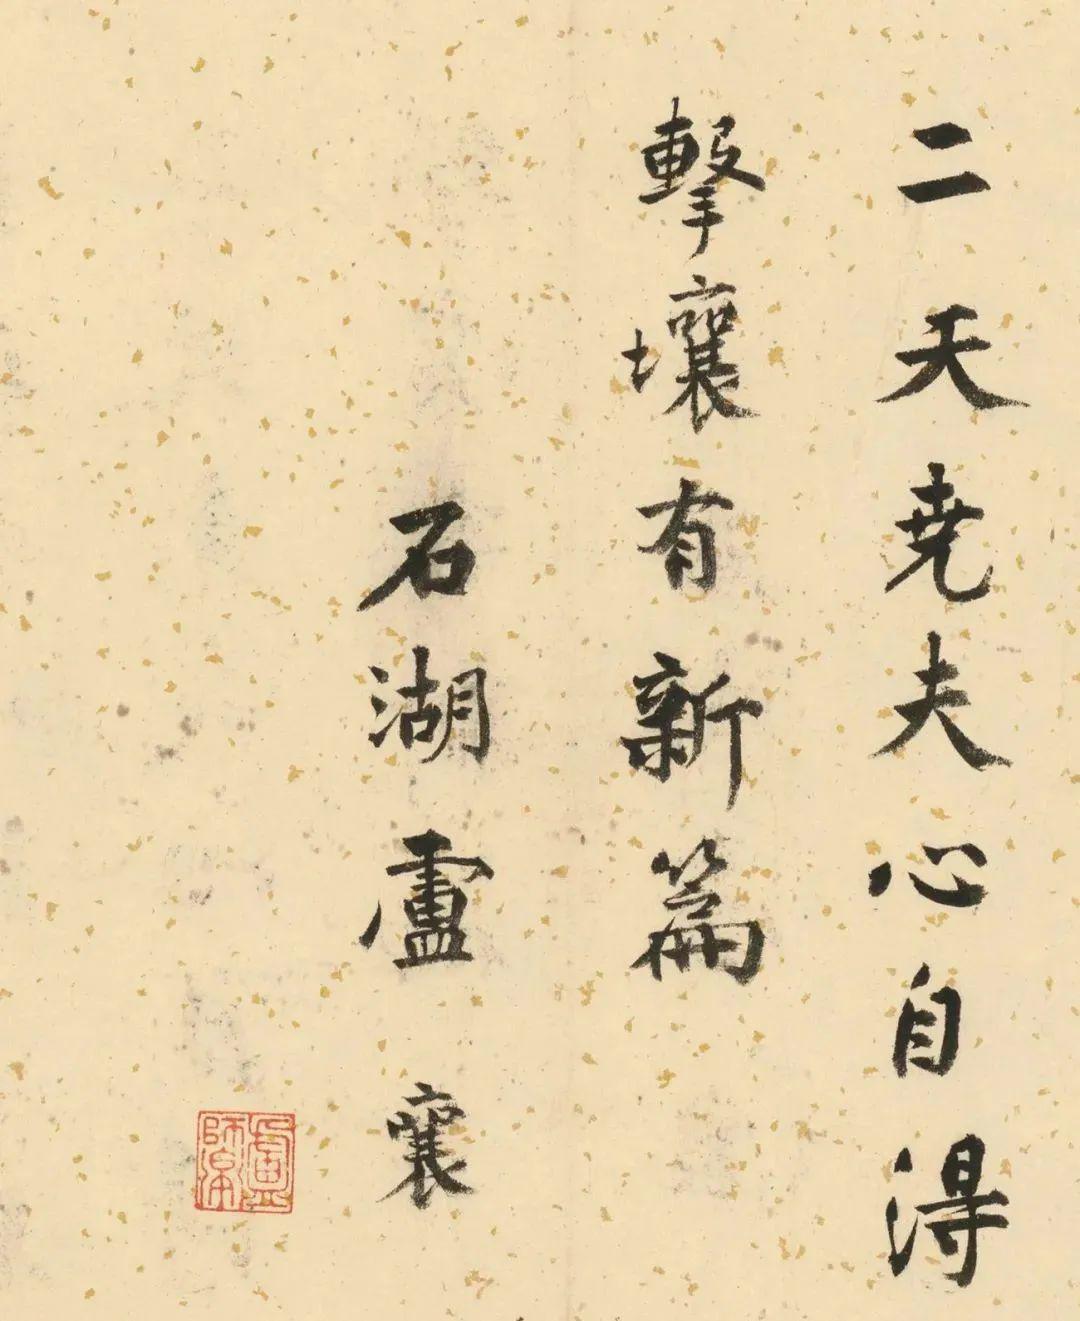 二天堯夫心自得
擊壤有新篇
石湖盧襄
盧師